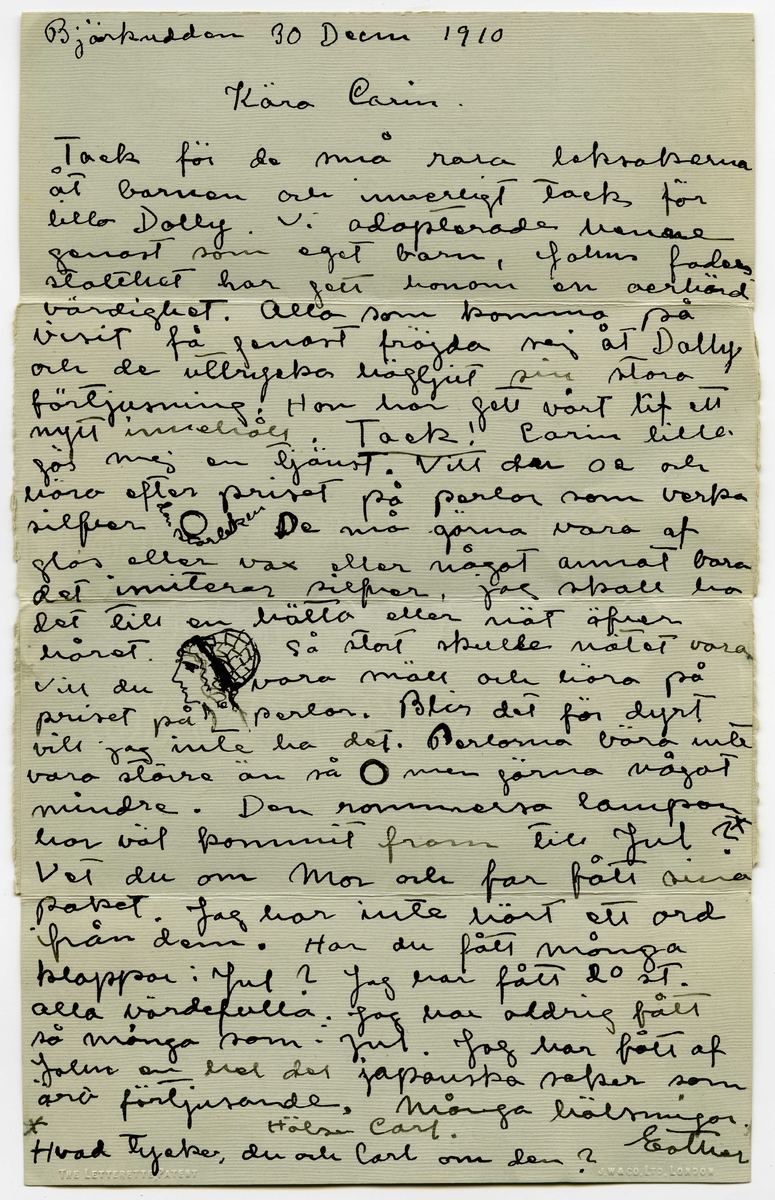 Björkudden 30 Decm 1910
Kära Carin.
Tack för de små rara leksakerna
åt barnen och innerligt tack för
lilla Dolly. Vi adopterade henne
genast som eget barn, Johns faders
stolthet har gett honom en oerhörd
värdighet. Alla som komma på
visit få genast fröjda sej åt Dolly
och de uttrycka högljut sin stora
förtjusning. Hon har gett vårt lif ett
nytt innehåll. Tack! Carin lilla
gör mej en tjänst. Vill du se och
höra efter priset på perlor som verka
silfver storleken De må gärna vara af
glas eller vax eller något annat bara
det imiterar silfver, jag skall ha
det till en hätta eller nät öfver
håret. Så stort skulle nätet vara
Vill du vara snäll och höra på
priset på perlor. Blir det för dyrt
vill jag inte ha det. Perlorna böra inte
vara större än så O men gärna något
mindre. Den rommersa lampan
har väl kommit fram till Jul?*
Vet du om Mor och far fått sina
paket. Jag har inte hört ett ord
från dem. Har du fått många
klappar i Jul? Jag har fått 20 st.
alla värdefulla. Jag har aldrig fått
så många som i Jul. Jag har fått af
John en hel del japanska saker som
äro förtjusande. Många hälsningar.
Hälsa Carl.
Esther
* Hvad tycker du och Carl om den?
THE LETTERETTE PATENT
J.W&CO,LTD,LONDON